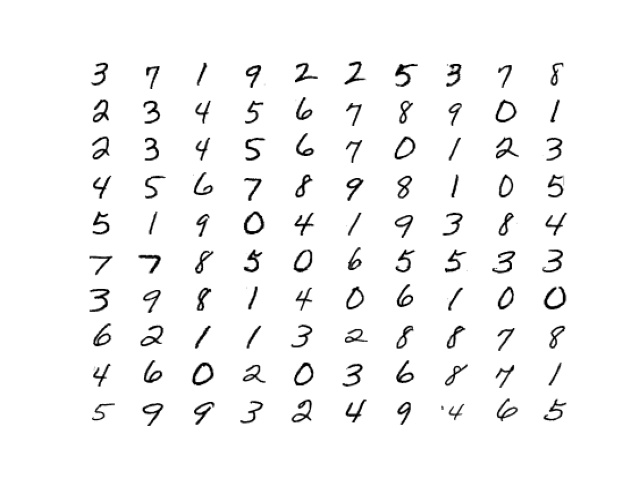 3 7 1 9 2 2 5 3 7 8
2 3 4 5 6 7 8 9 0 1
2 3 4 5 6 7 0 1 2 3
4 5 6 7 8 9 8 1 0 5
5 1 9 0 4 1 9 3 8 4
7 7 8 5 0 6 5 5 3 3
3 9 8 1 4 0 6 1 0 0
6 2 1 1 3 2 8 8 7 8
4 6 0 2 0 3 6 8 7 1
5 9 9 3 2 4 9 4 6 5